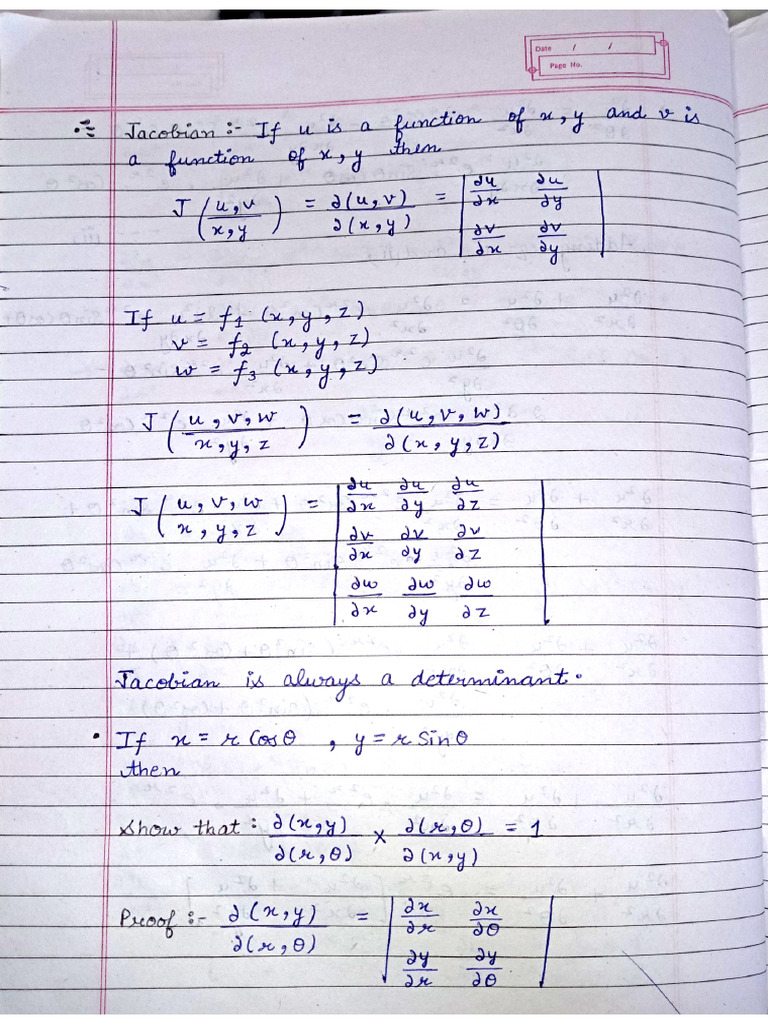 Date / /
Page No.
Jacobian :- If u is a function of x, y and v is
a function of x, y then
J (u, v / x, y) = ∂(u, v) / ∂(x, y) = | ∂u/∂x ∂u/∂y |
| ∂v/∂x ∂v/∂y |
If u = f₁ (x, y, z)
v = f₂ (x, y, z)
w = f₃ (x, y, z)
J (u, v, w / x, y, z) = ∂(u, v, w) / ∂(x, y, z)
J (u, v, w / x, y, z) = | ∂u/∂x ∂u/∂y ∂u/∂z |
| ∂v/∂x ∂v/∂y ∂v/∂z |
| ∂w/∂x ∂w/∂y ∂w/∂z |
Jacobian is always a determinant.
• If x = r Cosθ , y = r Sinθ
then
Show that : ∂(x, y) / ∂(r, θ) × ∂(r, θ) / ∂(x, y) = 1
Proof :- ∂(x, y) / ∂(r, θ) = | ∂x/∂r ∂x/∂θ |
| ∂y/∂r ∂y/∂θ |